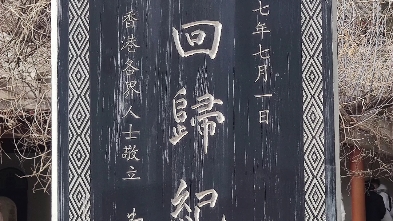 七年七月一日
回歸紀
香港各界人士敬立